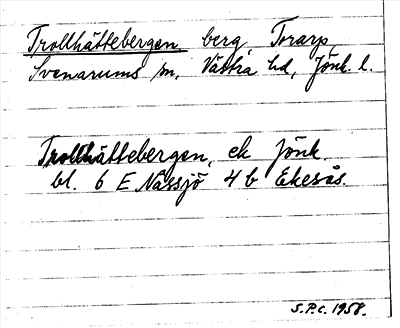 Trollhättebergen berg, Torarp,
Svenarums sn, Västra hd, Jönk l.
Trollhättebergen, ek Jönk
bl. 6 E Nässjö 4 b Ekesås.
S.P.C. 1958.